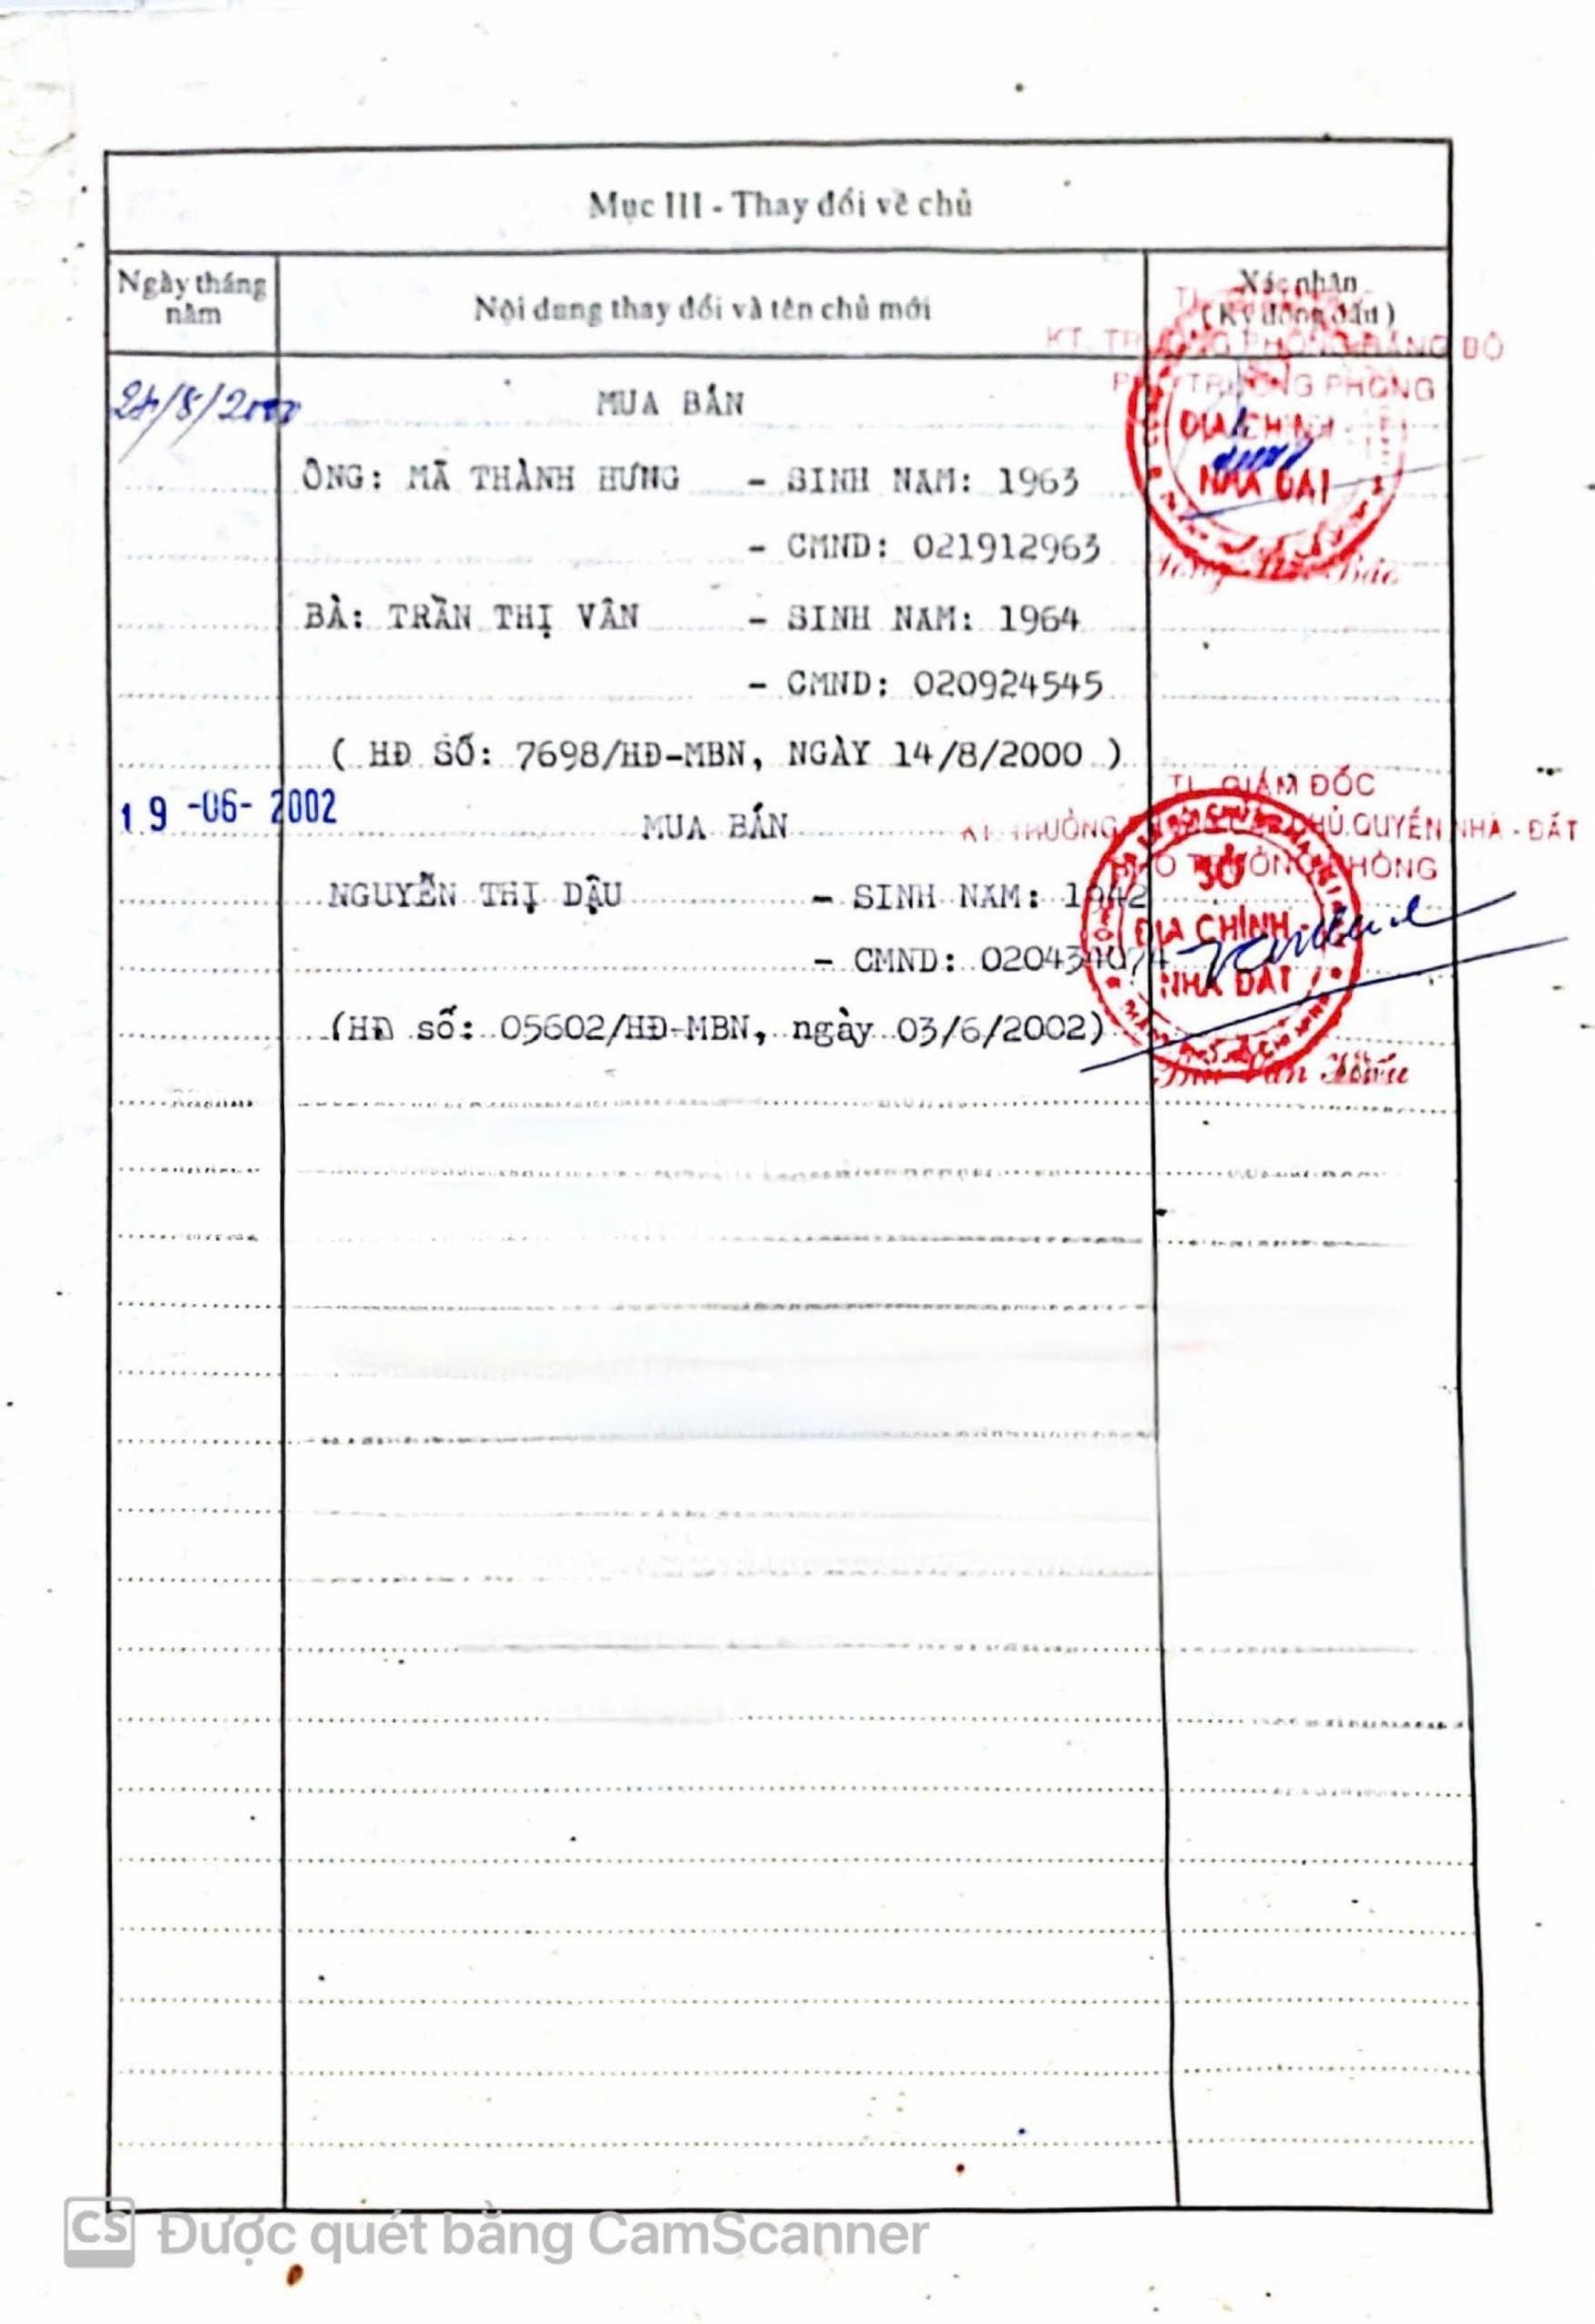 Mục III - Thay đổi về chủ
Ngày tháng năm
Nội dung thay đổi và tên chủ mới
Xác nhận
(Ký đóng dấu)
KT. TRƯỞNG PHÒNG ĐĂNG BỘ
PHÓ TRƯỞNG PHÒNG
/8/2000
MUA BÁN
ĐỊA CHÍNH
NHÀ ĐẤT
ÔNG: MÃ THÀNH HƯNG - SINH NAM: 1963
- CMND: 021912963
BÀ: TRẦN THỊ VÂN - SINH NAM: 1964
- CMND: 020924545
( HĐ SỐ: 7698/HĐ-MBN, NGÀY 14/8/2000 )
TL. GIÁM ĐỐC
19 -06- 2002
MUA BÁN
KT. TRƯỞNG CHỦ QUYỀN NHÀ - ĐẤT
PHÓ TRƯỞNG PHÒNG
SỞ
ĐỊA CHÍNH
NHÀ ĐẤT
NGUYỄN THỊ DẬU - SINH NAM: 1942
- CMND:
(HĐ số: 05602/HĐ-MBN, ngày 03/6/2002)
CS Được quét bằng CamScanner